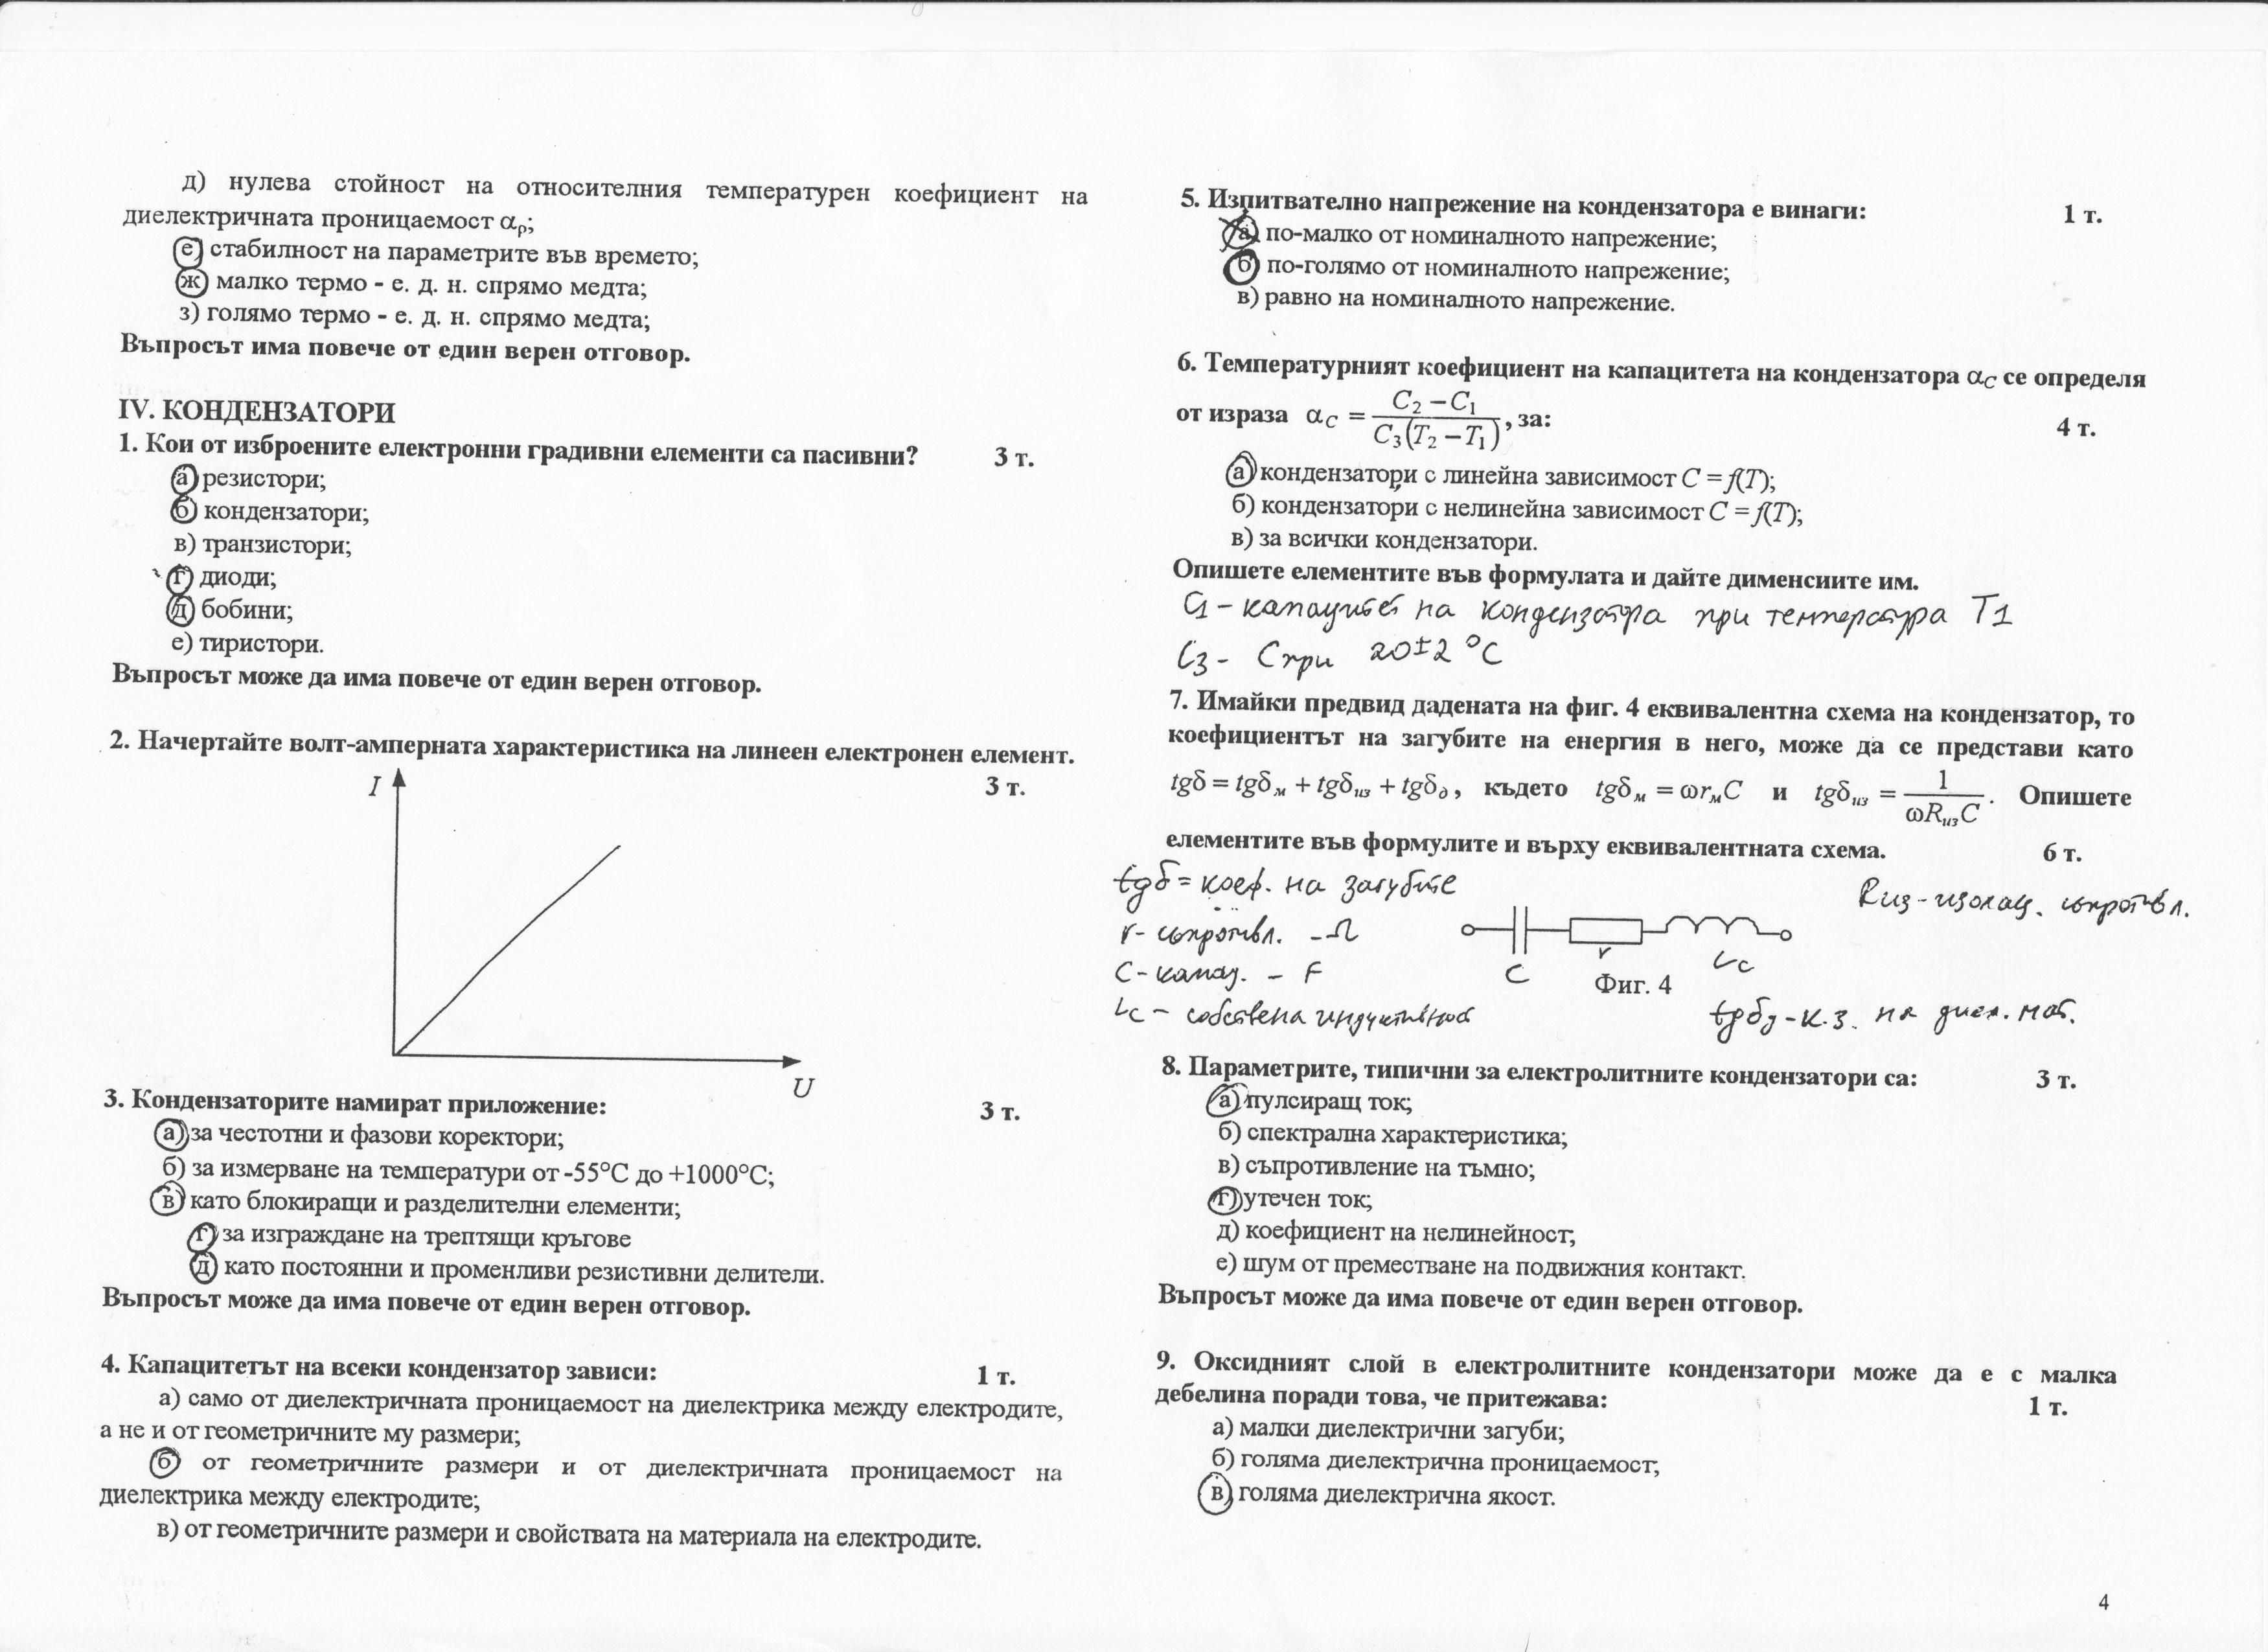 д) нулева стойност на относителния температурен коефициент на
диелектричната проницаемост αρ;
е) стабилност на параметрите във времето;
ж) малко термо - е. д. н. спрямо медта;
з) голямо термо - е. д. н. спрямо медта;
Въпросът има повече от един верен отговор.
IV. КОНДЕНЗАТОРИ
1. Кои от изброените електронни градивни елементи са пасивни? 3 т.
а) резистори;
б) кондензатори;
в) транзистори;
г) диоди;
д) бобини;
е) тиристори.
Въпросът може да има повече от един верен отговор.
2. Начертайте волт-амперната характеристика на линеен електронен елемент.
3 т.
I
U
3. Кондензаторите намират приложение: 3 т.
а) за честотни и фазови коректори;
б) за измерване на температури от -55°C до +1000°C;
в) като блокиращи и разделителни елементи;
г) за изграждане на трептящи кръгове
д) като постоянни и променливи резистивни делители.
Въпросът може да има повече от един верен отговор.
4. Капацитетът на всеки кондензатор зависи: 1 т.
а) само от диелектричната проницаемост на диелектрика между електродите,
а не и от геометричните му размери;
б) от геометричните размери и от диелектричната проницаемост на
диелектрика между електродите;
в) от геометричните размери и свойствата на материала на електродите.
5. Изпитвателно напрежение на кондензатора е винаги: 1 т.
а) по-малко от номиналното напрежение;
б) по-голямо от номиналното напрежение;
в) равно на номиналното напрежение.
6. Температурният коефициент на капацитета на кондензатора αC се определя
от израза αC = (C2 – C1) / (C3(T2 – T1)), за: 4 т.
а) кондензатори с линейна зависимост C = f(T);
б) кондензатори с нелинейна зависимост C = f(T);
в) за всички кондензатори.
Опишете елементите във формулата и дайте дименсиите им.
C1 – капацитет на кондензатора при температура T1
C3 - C при 20±2 °C
7. Имайки предвид дадената на фиг. 4 еквивалентна схема на кондензатор, то
коефициентът на загубите на енергия в него, може да се представи като
tgδ = tgδм + tgδиз + tgδд, където tgδм = ωrмC и tgδиз = 1 / (ωRизC). Опишете
елементите във формулите и върху еквивалентната схема. 6 т.
tgδ = коеф. на загубите
Rиз - изолац. съпротивл.
r - съпротивл. - Ω
C - капац. - F
C r Lc
Фиг. 4
Lc - собствена индуктивност
tgδд - к.з. на диел. мат.
8. Параметрите, типични за електролитните кондензатори са: 3 т.
а) пулсиращ ток;
б) спектрална характеристика;
в) съпротивление на тъмно;
г) утечен ток;
д) коефициент на нелинейност;
е) шум от преместване на подвижния контакт.
Въпросът може да има повече от един верен отговор.
9. Оксидният слой в електролитните кондензатори може да е с малка
дебелина поради това, че притежава: 1 т.
а) малки диелектрични загуби;
б) голяма диелектрична проницаемост;
в) голяма диелектрична якост.
4